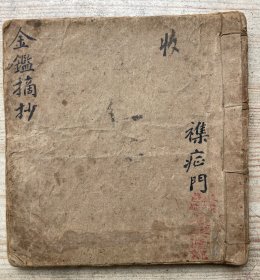 收
襍症門
金鑑摘抄